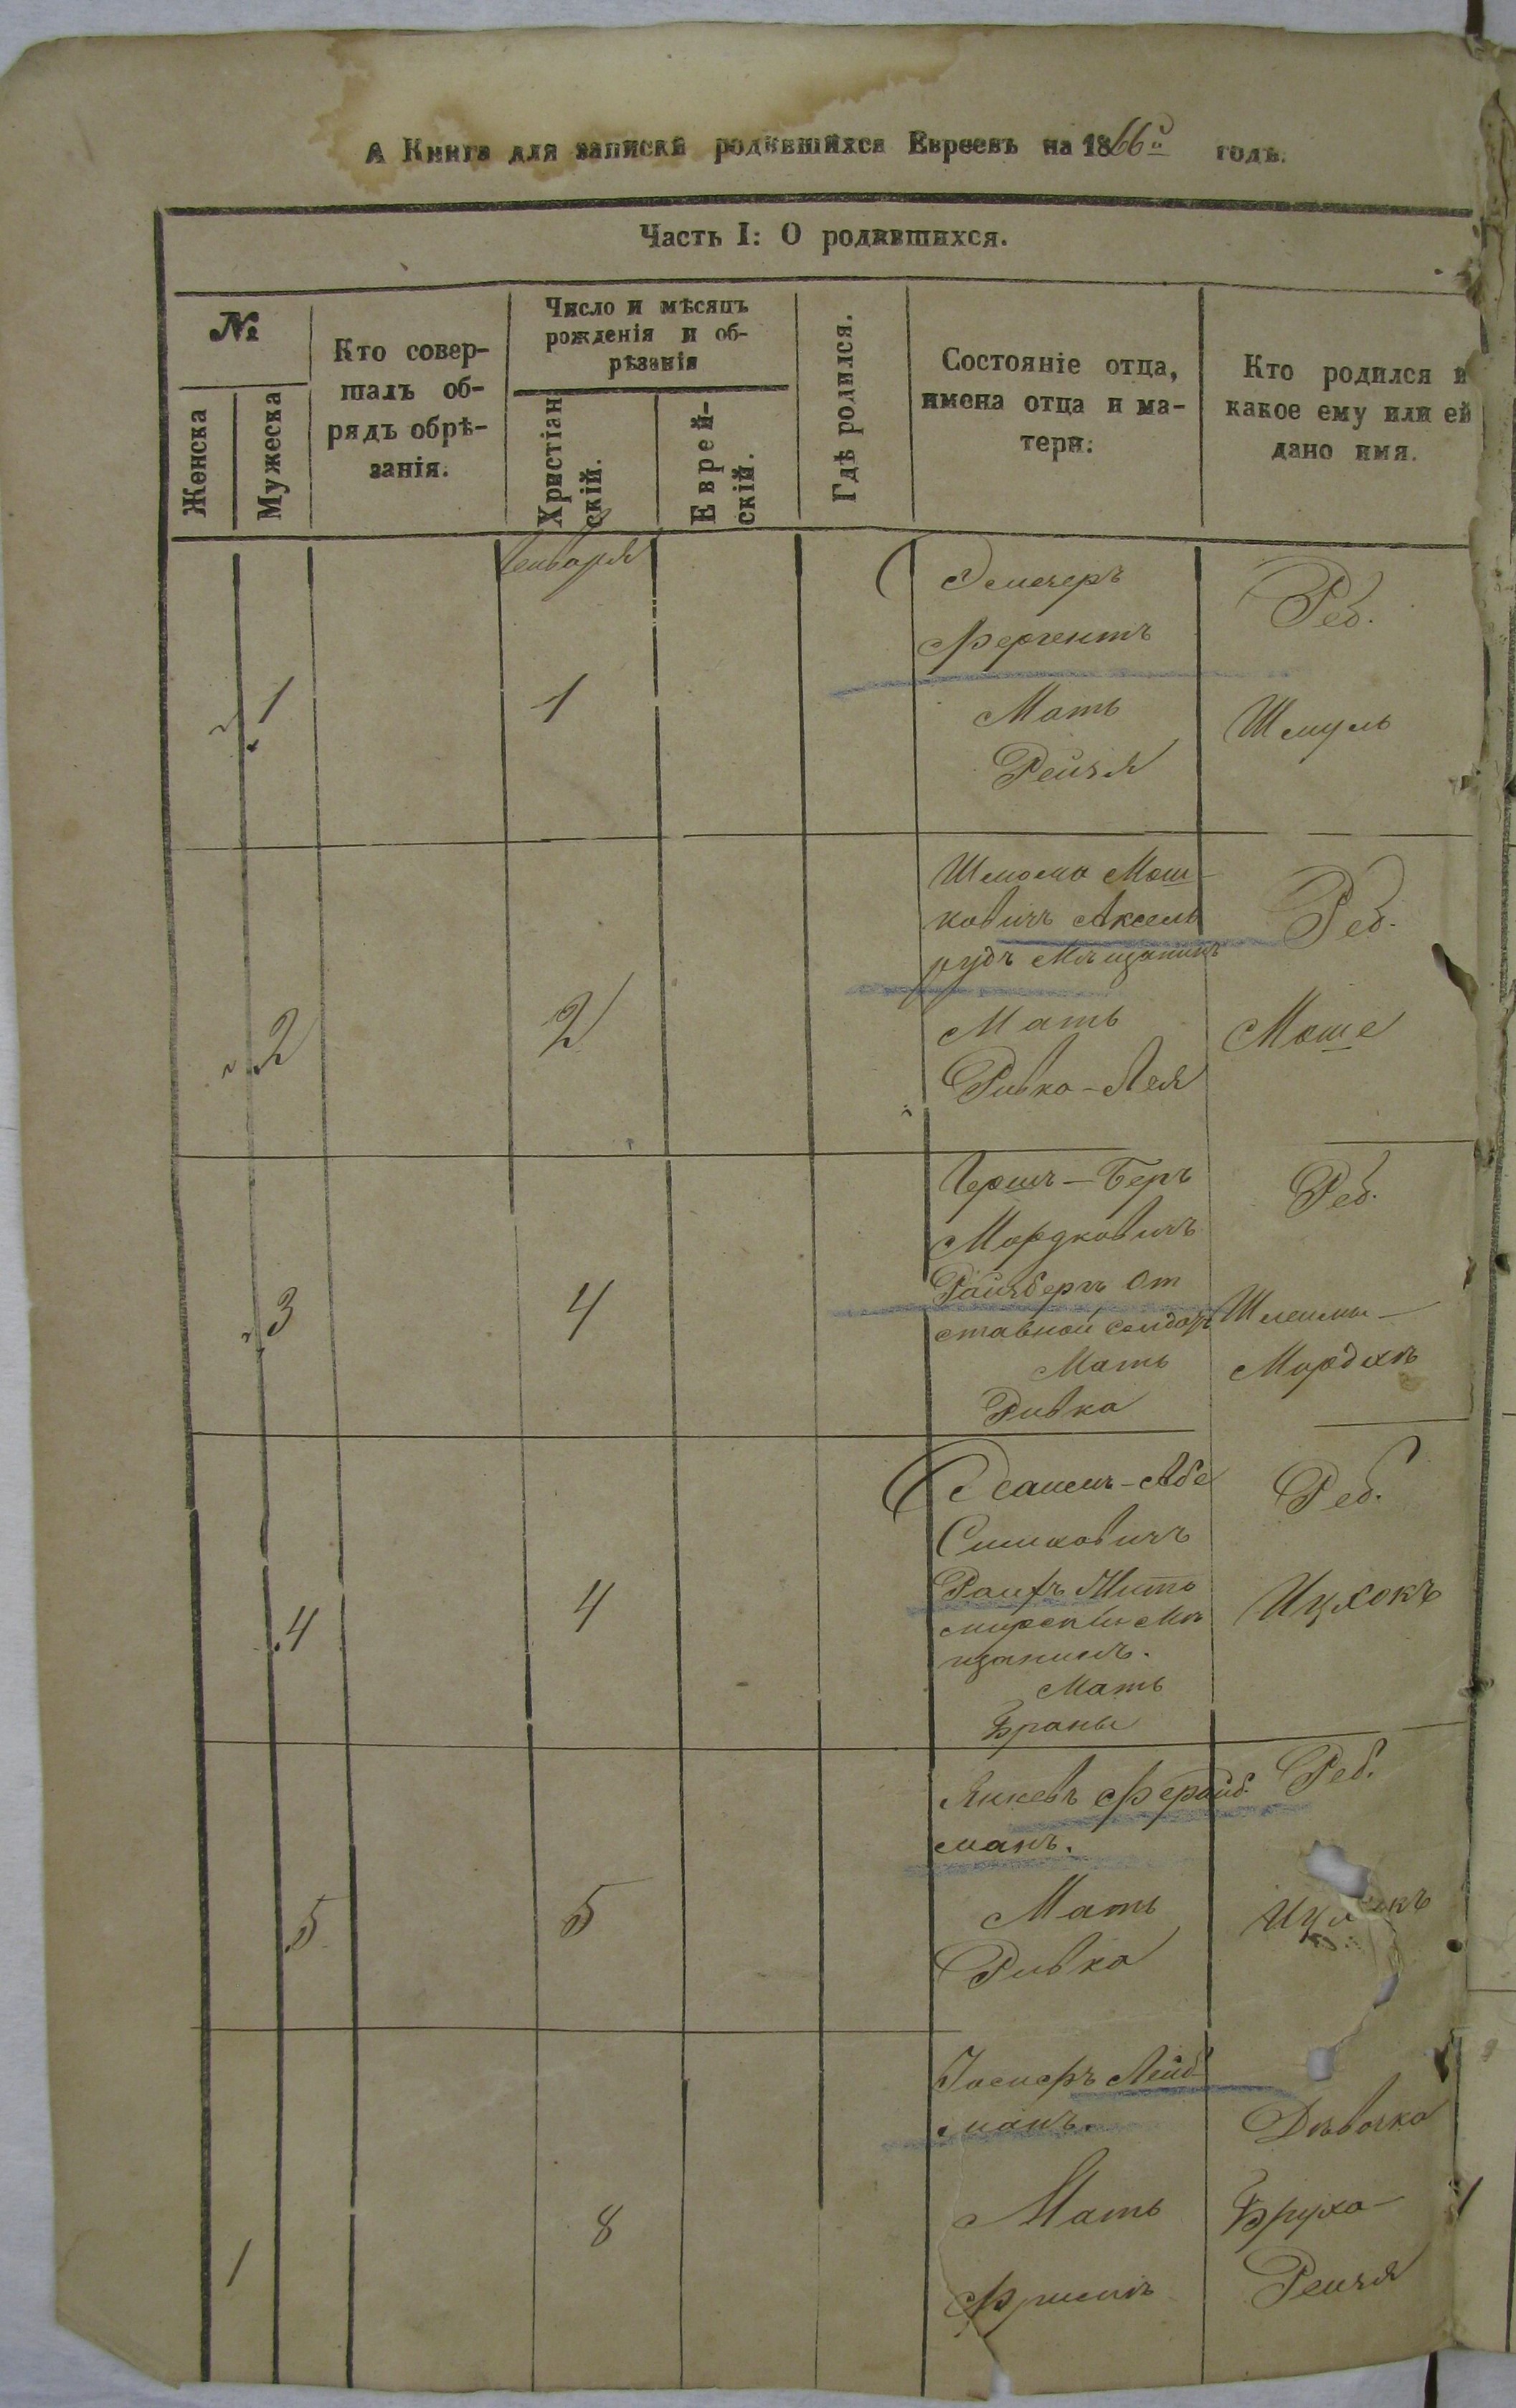 А Книга для записки родившихся Евреевъ на 1866й годъ.
Часть I: О родившихся.
№
Женска
Мужеска
Кто совер-
шалъ об-
рядъ обрѣ-
занія.
Число и мѣсяцъ
рожденія и об-
рѣзанія
Христіан
скій.
Еврей-
скій.
Гдѣ родился.
Состояніе отца,
имена отца и ма-
тери.
Кто родился и
какое ему или ей
дано имя.
Января
1
1
Мать
Рейзя
Реб.
Шмуль
2
2
Шмома Мош-
ковичъ Аксель
рудъ Мѣщанинъ
Мать
Ривка-Лея
Реб.
Моше
3
4
Гершъ-Беръ
Мордковичъ
Райзбергъ От
ставной солдатъ
Мать
Ривка
Реб.
Мордхъ
4
4
Симховичъ
Жито
мирскій Мѣ
щанинъ.
Мать
Браны
Реб.
Ицхокъ
5
5
Янкевъ
манъ.
Мать
Ривка
Реб.
1
8
Іосифъ Лейб-
манъ.
Мать
Дѣвочка
Бруха-
Рейзя